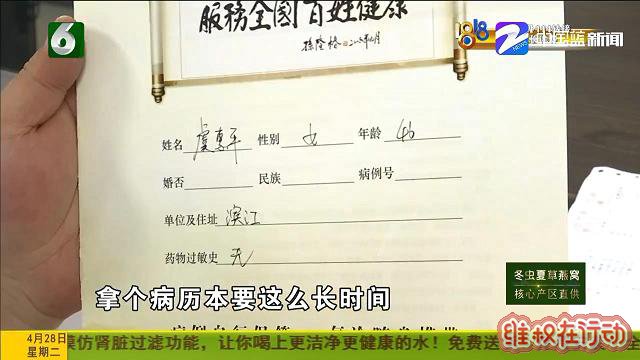 服務全國百姓健康
6
1818
Z 中国蓝新闻
姓名 虞惠平 性别 女 年龄 46
婚否 民族 病例号
单位及住址 滨江
药物过敏史 无
冬虫夏草燕窝
核心产区直供
拿个病历本要这么长时间
维权在行动
4月28日
星期二
模仿肾脏过滤功能，让你喝上更洁净更健康的水！免费送